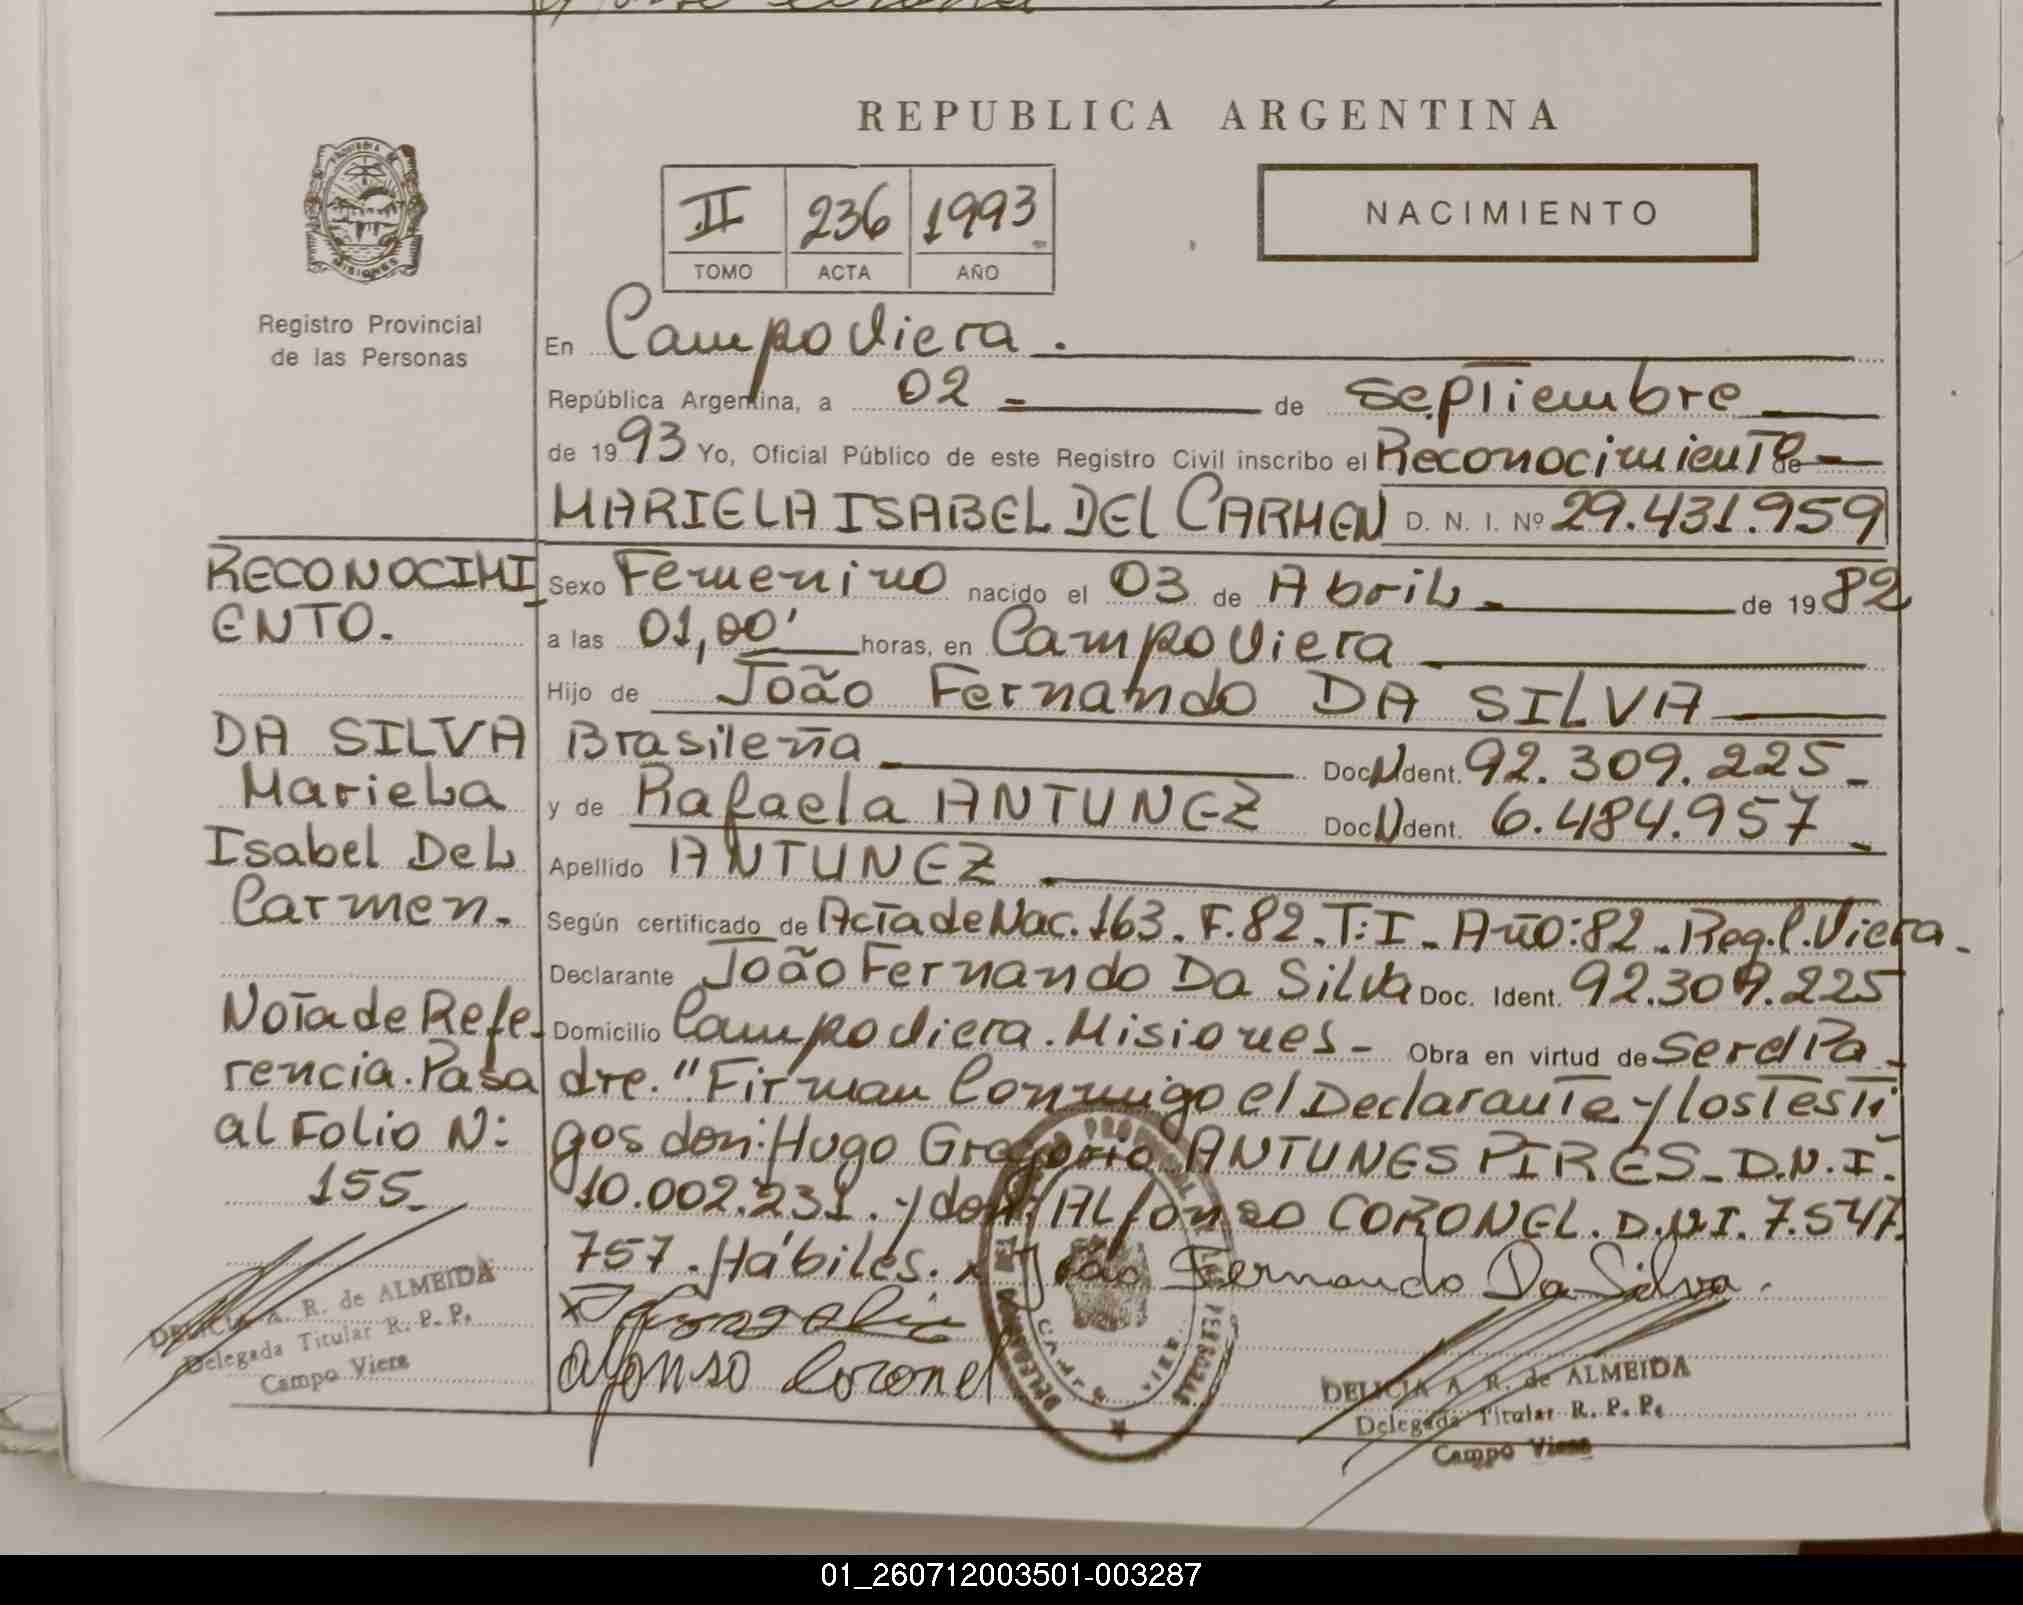 REPUBLICA ARGENTINA
NACIMIENTO
II 236 1993
TOMO ACTA AÑO
PROVINCIA DE
MISIONES
Registro Provincial
de las Personas
En Campo Viera.
República Argentina, a 02 - de Septiembre
de 1993 Yo, Oficial Público de este Registro Civil inscribo el Reconocimiento de
MARIELA ISABEL DEL CARMEN D. N. I. Nº 29.431.959
Sexo Femenino nacido el 03 de Abril - de 1982
a las 01,00' horas, en Campo Viera
Hijo de João Fernando DA SILVA
Brasileña Doc N Ident. 92.309.225-
y de Rafaela ANTUNEZ Doc N Ident. 6.484.957-
Apellido ANTUNEZ
Según certificado de Acta de Nac. 163. F.82. T:I. Año:82. Reg. C. Viera.
Declarante João Fernando Da Silva Doc. Ident. 92.309.225
Domicilio Campo Viera. Misiones- Obra en virtud de Ser el Pa-
dre." Firman Conmigo el Declarante y los Testi
gos don: Hugo Gregorio ANTUNES PIRES- D.N.I.
10.002.231. y don: Alfonso CORONEL. D.N.I. 7.547.
757. Hábiles. x João Fernando Da Silva.
Alfonso Coronel
DELICIA A R. de ALMEIDA
Delegada Titular R. P. P.
Campo Viera
RECONOCIMI-
ENTO.
DA SILVA
Mariela
Isabel Del
Carmen.
Nota de Refe-
rencia. Pasa
al Folio N:
155.
DELICIA A R. de ALMEIDA
Delegada Titular R. P. P.
Campo Viera
01_260712003501-003287